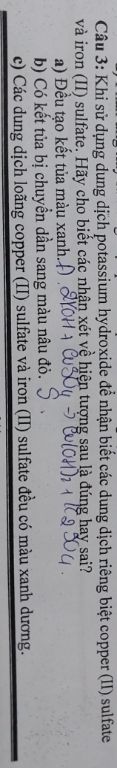 Câu 3: Khi sử dụng dung dịch potassium hydroxide để nhận biết các dung dịch riêng biệt copper (II) sulfate
và iron (II) sulfate. Hãy cho biết các nhận xét về hiện tượng sau là đúng hay sai?
a) Đều tạo kết tủa màu xanh. Đ, 2KOH + CuSO4 → Cu(OH)2 + K2SO4.
b) Có kết tủa bị chuyển dần sang màu nâu đỏ. S
c) Các dung dịch loãng copper (II) sulfate và iron (II) sulfate đều có màu xanh dương.